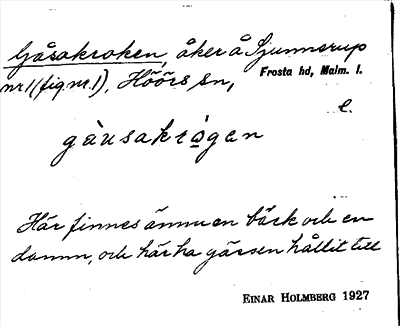 Gåsakroken, åker å Sjunnerup
nr 1 (fig. nr. 1), Höörs sn, Frosta hd, Malm. l.
e.
gàusakrǫ́gen
Här finnes ännu en bäck och en
damm, och här ha gässen hållit till
EINAR HOLMBERG 1927